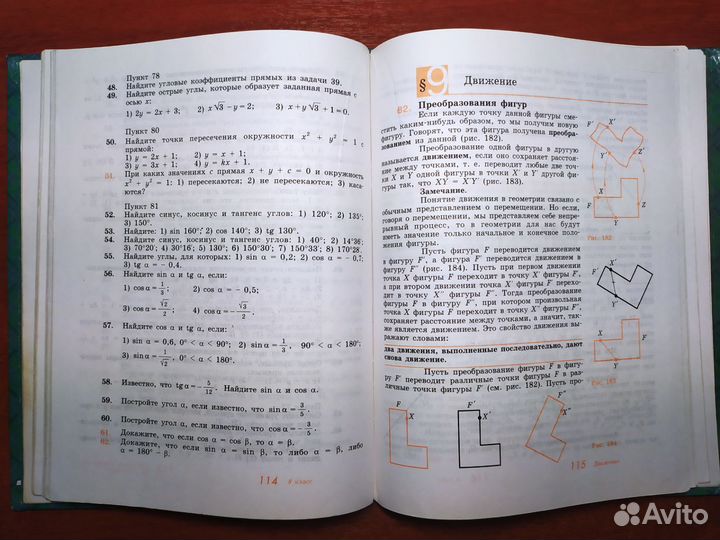 Пункт 78
48. Найдите угловые коэффициенты прямых из задачи 39.
49. Найдите острые углы, которые образует заданная прямая с
осью x:
1) 2y = 2x + 3; 2) x√3 − y = 2; 3) x + y√3 + 1 = 0.
Пункт 80
50. Найдите точки пересечения окружности x² + y² = 1 с
прямой:
1) y = 2x + 1; 2) y = x + 1;
3) y = 3x + 1; 4) y = kx + 1.
51. При каких значениях c прямая x + y + c = 0 и окружность
x² + y² = 1: 1) пересекаются; 2) не пересекаются; 3) каса-
ются?
Пункт 81
52. Найдите синус, косинус и тангенс углов: 1) 120°; 2) 135°;
3) 150°.
53. Найдите: 1) sin 160°; 2) cos 140°; 3) tg 130°.
54. Найдите синус, косинус и тангенс углов: 1) 40°; 2) 14°36′;
3) 70°20′; 4) 30°16′; 5) 130°; 6) 150°30′; 7) 150°33′; 8) 170°28′.
55. Найдите углы, для которых: 1) sin α = 0,2; 2) cos α = − 0,7;
3) tg α = − 0,4.
56. Найдите sin α и tg α, если:
1) cos α = 1/3; 2) cos α = − 0,5;
3) cos α = √2/2; 4) cos α = − √3/2.
57. Найдите cos α и tg α, если:
1) sin α = 0,6, 0° < α < 90°; 2) sin α = 1/3, 90° < α < 180°;
3) sin α = 1/√2, 0° < α < 180°.
58. Известно, что tg α = − 5/12. Найдите sin α и cos α.
59. Постройте угол α, если известно, что sin α = 3/5.
60. Постройте угол α, если известно, что cos α = − 3/5.
61. Докажите, что если cos α = cos β, то α = β.
62. Докажите, что если sin α = sin β, то либо α = β, либо
α = 180° − β.
114 8 класс
§ 9 Движение
82. Преобразования фигур
Если каждую точку данной фигуры сме-
стить каким-нибудь образом, то мы получим новую
фигуру. Говорят, что эта фигура получена преобра-
зованием из данной (рис. 182).
Преобразование одной фигуры в другую
называется движением, если оно сохраняет расстоя-
ние между точками, т. е. переводит любые две точ-
ки X и Y одной фигуры в точки X′ и Y′ другой фи-
гуры так, что XY = X′Y′ (рис. 183).
Замечание.
Понятие движения в геометрии связано с
обычным представлением о перемещении. Но если,
говоря о перемещении, мы представляем себе непре-
рывный процесс, то в геометрии для нас будут
иметь значение только начальное и конечное поло-
жения фигуры.
Пусть фигура F переводится движением
в фигуру F′, а фигура F′ переводится движением
в фигуру F″ (рис. 184). Пусть при первом движении
точка X фигуры F переходит в точку X′ фигуры F′,
а при втором движении точка X′ фигуры F′ перехо-
дит в точку X″ фигуры F″. Тогда преобразование
фигуры F в фигуру F″, при котором произвольная
точка X фигуры F переходит в точку X″ фигуры F″,
сохраняет расстояние между точками, а значит, так-
же является движением. Это свойство движения вы-
ражают словами:
два движения, выполненные последовательно, дают
снова движение.
Пусть преобразование фигуры F в фигу-
ру F′ переводит различные точки фигуры F в раз-
личные точки фигуры F′ (см. рис. 182). Пусть про-
F′
X′
Y′
Z′
F
X
Y
Z
Рис. 182
F′
X′
Y′
F
X
Y
Рис. 183
F
X
F′
X′
F″
X″
Рис. 184
115 Движение
Avito